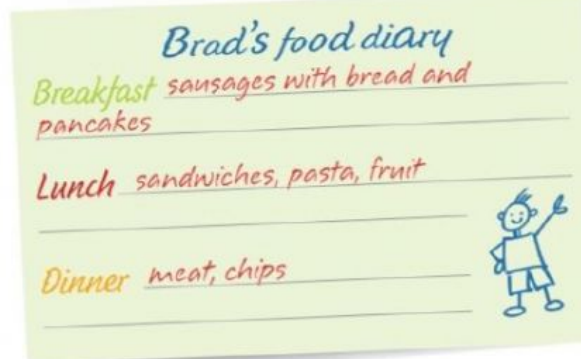 Brad's food diary
Breakfast sausages with bread and
pancakes
Lunch sandwiches, pasta, fruit
Dinner meat, chips